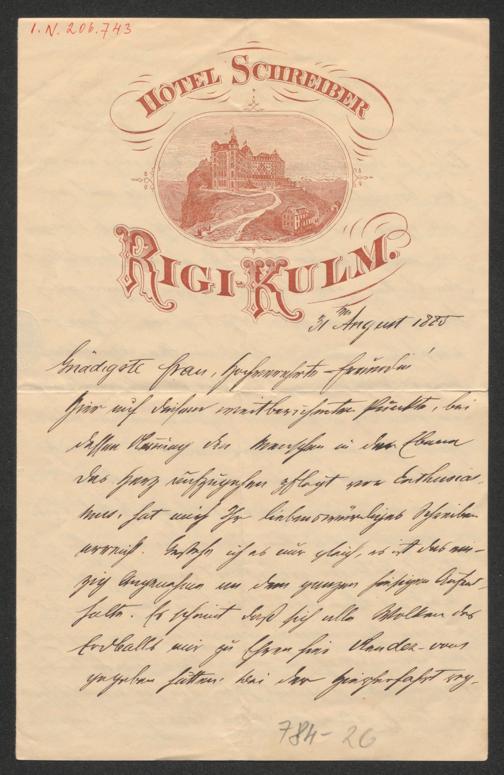 I.N. 206.743
HÔTEL SCHREIBER
RIGI-KULM.
31 ten August 1885
Gnädigste Frau, hochverehrte Freundin!
Hier auf diesem weitberühmten Punkte, bei
dessen Nennung den Menschen in der Ebene
das Herz aufzugehen pflegt vor Enthusias-
mus, hat mich Ihr liebenswürdiges Schreiben
erreicht. Gestehe ich es nur gleich, es ist das ein-
zig Angenehme an dem ganzen hiesigen Aufent-
halte. Es scheint daß sich alle Wolken des
Erdballs mir zu Ehren hier Rendez-vous
gegeben hätten. Bei der Hieherfahrt reg-
784-26